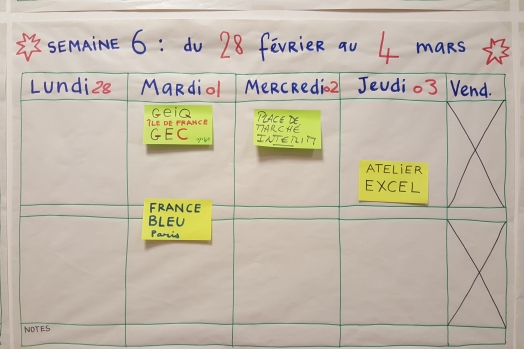 SEMAINE 6 : du 28 février au 4 mars
Lundi 28 Mardi 01 Mercredi 02 Jeudi 03 Vend.
GEIQ
ILE DE FRANCE
GEC
PLACE DE
MARCHÉ
INTERIM
ATELIER
EXCEL
FRANCE
BLEU
Paris
NOTES